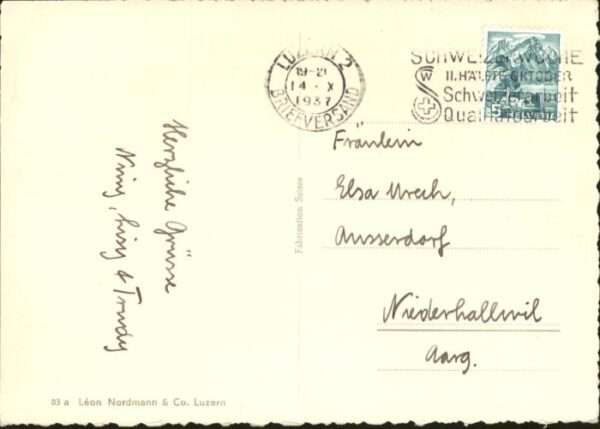 LUZERN 2
19-21
14·X
1937
BRIEFVERSAND
SCHWEIZERWOCHE
II. HÄLFTE OKTOBER
W
Schweizerarbeit
Qualitätsarbeit
5
Herzliche Grüsse
Niny, Lisy & Trudy
Fabrication Suisse
Fräulein
Elsa Urech,
Ausserdorf
Niederhallwil
Aarg.
83 a Léon Nordmann & Co. Luzern